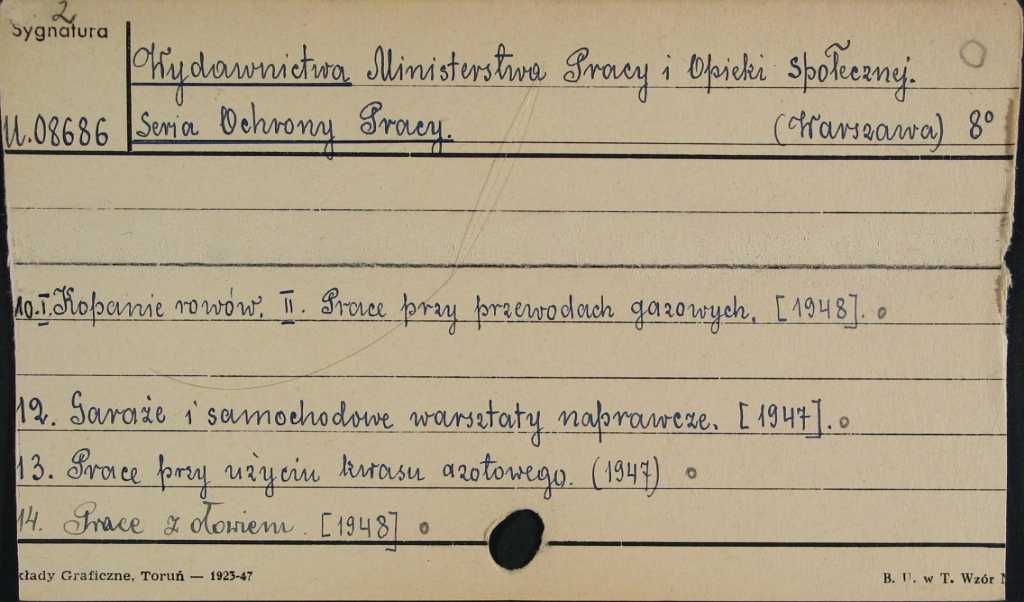 2
Sygnatura
Wydawnictwa Ministerstwa Pracy i Opieki Społecznej.
U.08686 Seria Ochrony Pracy. (Warszawa) 8°
10.I. Kopanie rowów. II. Prace przy przewodach gazowych. [1948].
12. Garaże i samochodowe warsztaty naprawcze. [1947].
13. Prace przy użyciu kwasu azotowego. (1947)
14. Prace z ołowiem. [1948]
kłady Graficzne, Toruń — 1923-47 B. U. w T. Wzór